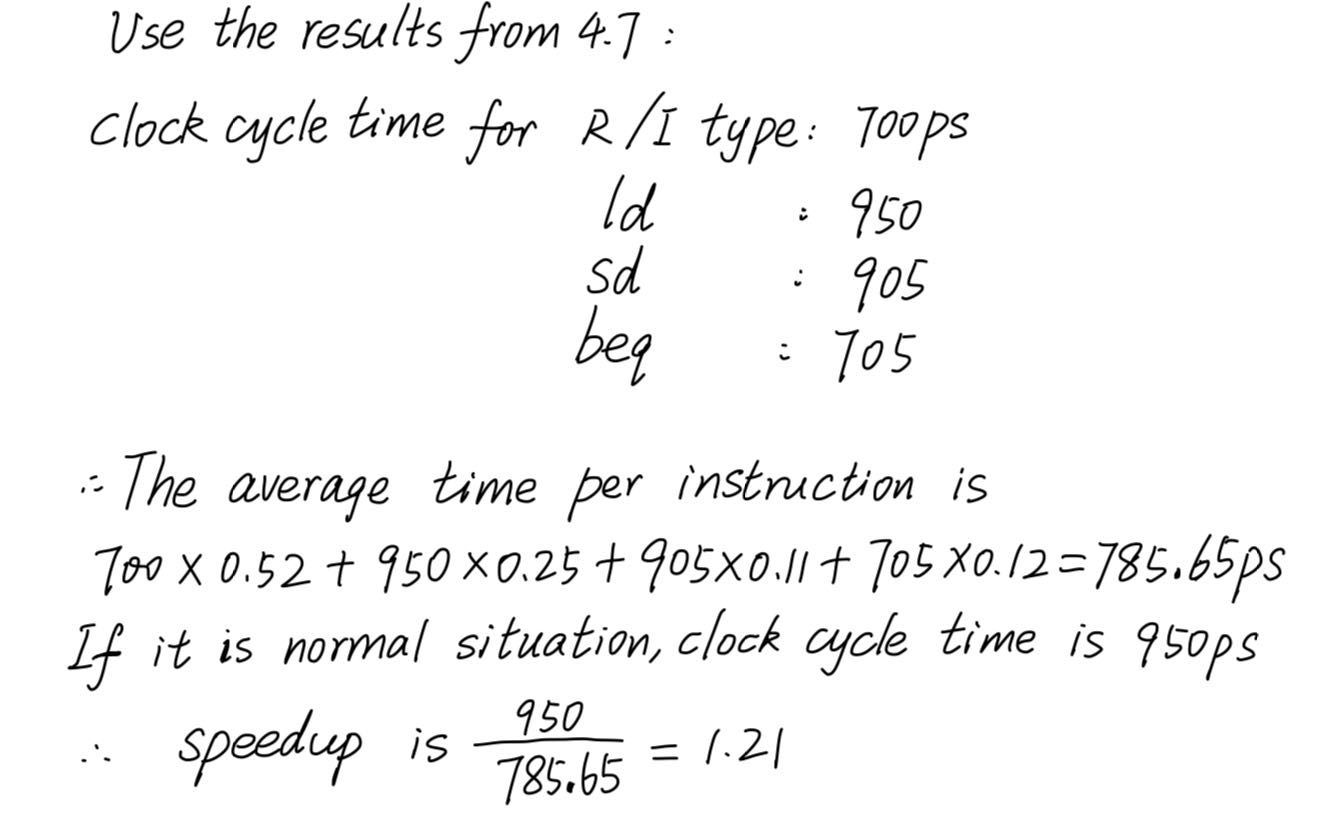 Use the results from 4.7 :
Clock cycle time for R/I type: 700ps
ld : 950
sd : 905
beq : 705
∴ The average time per instruction is
700 × 0.52 + 950 × 0.25 + 905×0.11 + 705 ×0.12 = 785.65ps
If it is normal situation, clock cycle time is 950ps
∴ speedup is 950/785.65 = 1.21